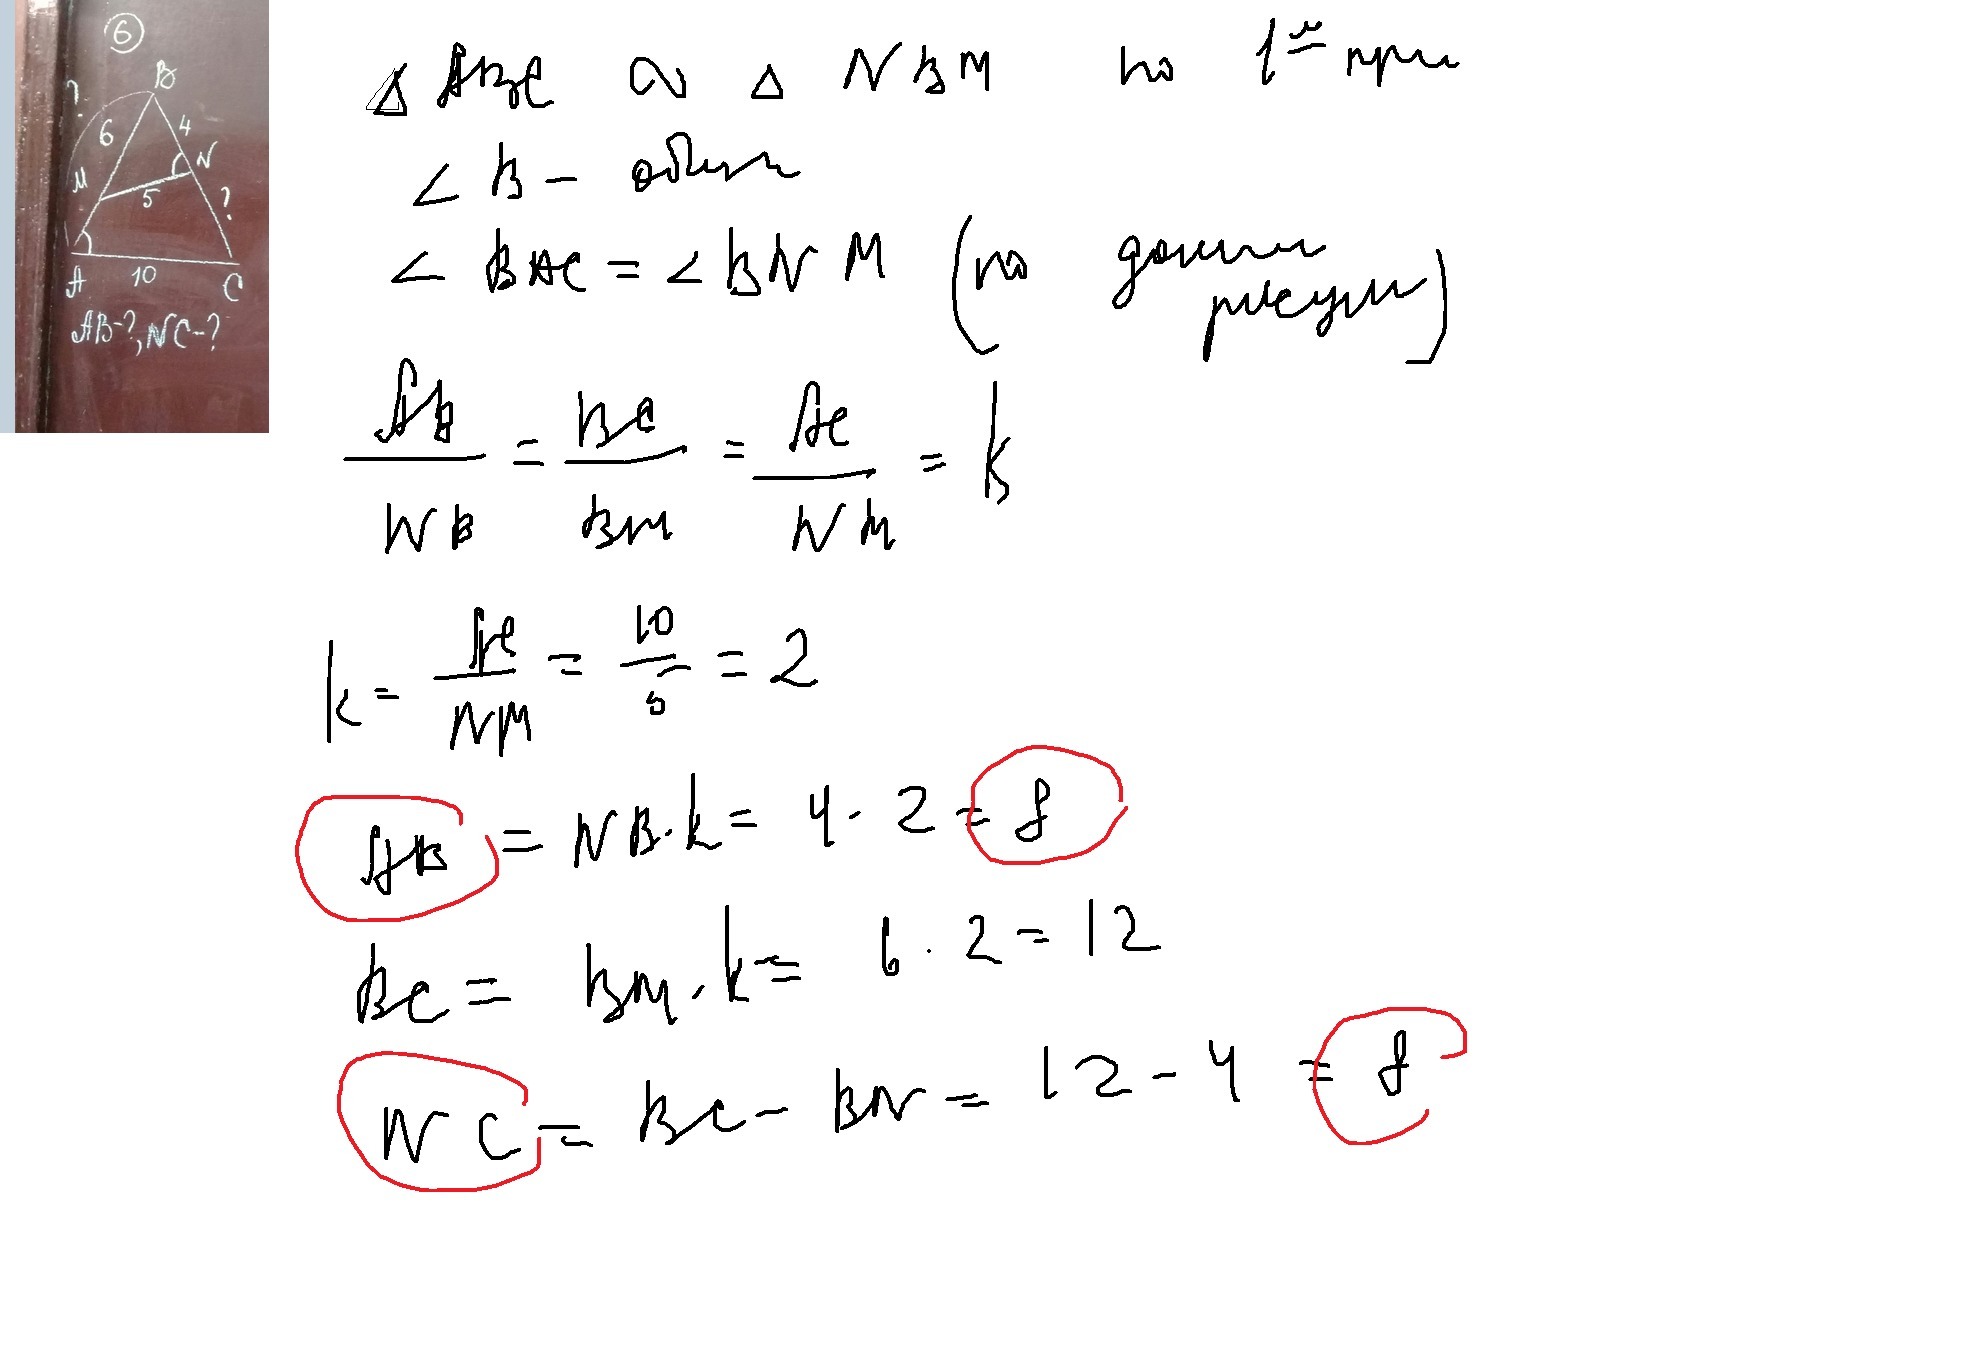 6
B
?
6
4
M
N
5
?
A
10
C
AB-?, NC-?
△ ABC ∾ △ NBM по 1ᵐ при
∠ B – общи
∠ BAC = ∠ BNM (по данны рисунк)
AB/NB = BC/BM = AC/NM = k
k = AC/NM = 10/5 = 2
AB = NB·k = 4·2 = 8
BC = BM·k = 6·2 = 12
NC = BC – BN = 12 – 4 = 8